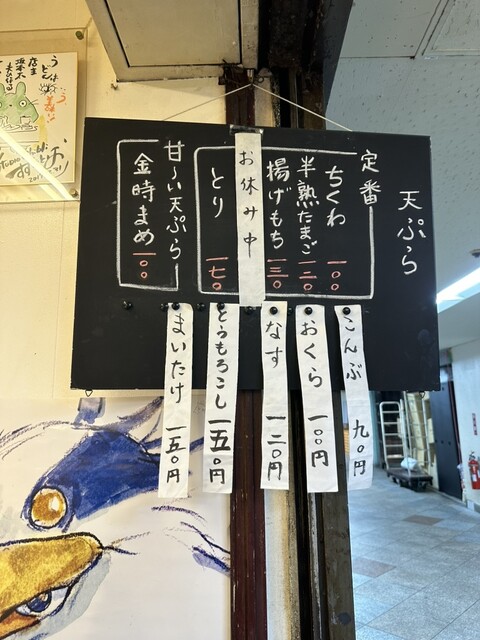 天ぷら
定番
ちくわ 一〇〇
半熟たまご 一二〇
揚げもち 一三〇
お休み中
とり 一七〇
甘〜い天ぷら
金時まめ 一〇〇
こんぶ 九〇円
おくら 一〇〇円
なす 一二〇円
とうもろこし 一五〇円
まいたけ 一五〇円
うどん
店主